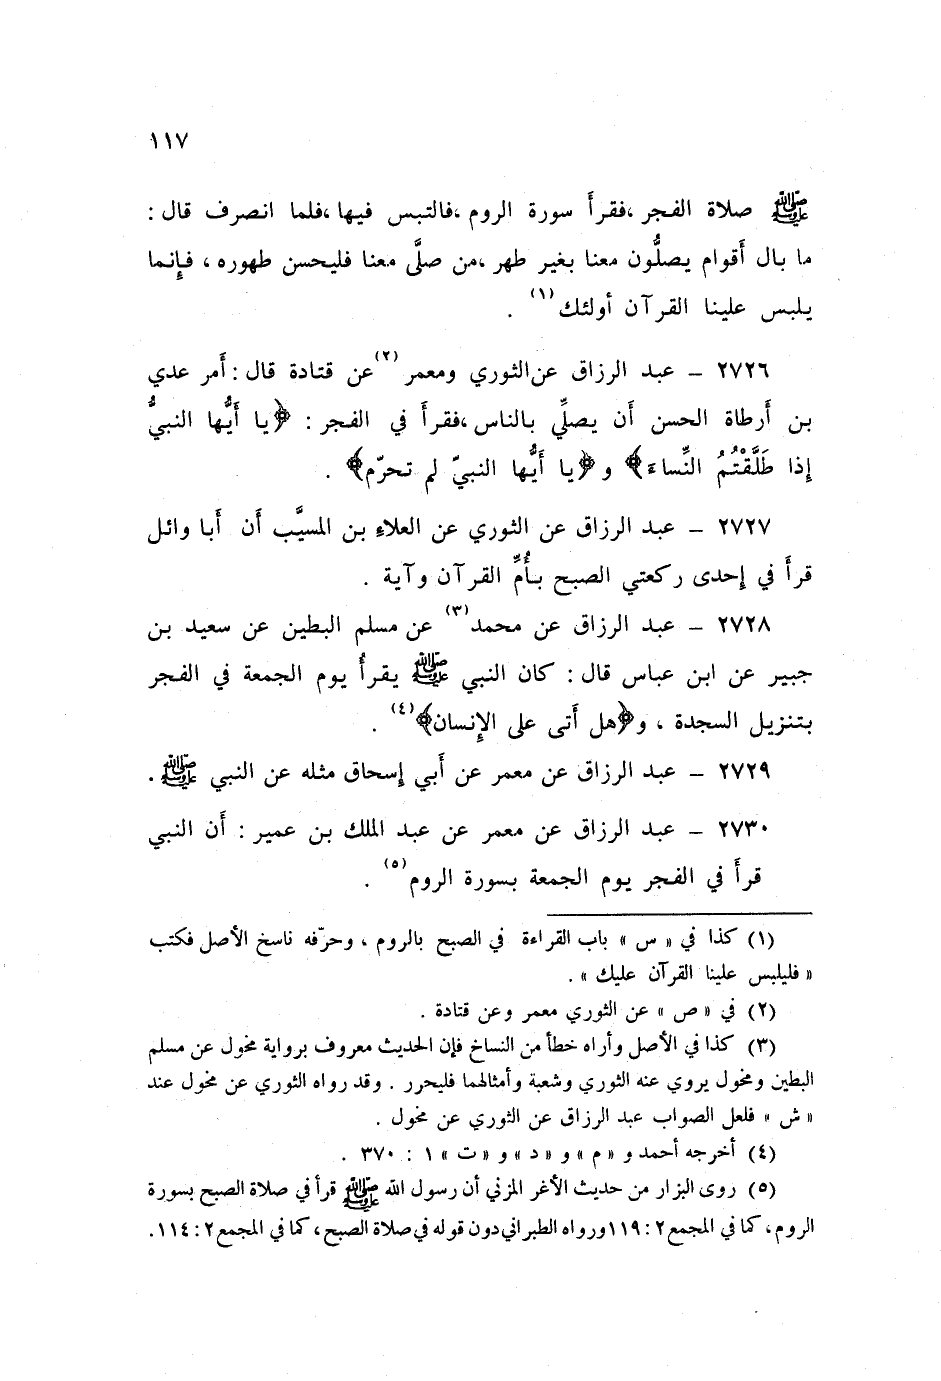 ١١٧
ﷺ صلاة الفجر ،فقرأَ سورة الروم ،فالتبس فيها ،فلما انصرف قال :
ما بال أَقوام يصلُّون معنا بغير طهر ،من صلَّى معنا فليحسن طهوره ، فإِنما
يلبس علينا القرآن أولئك (١) .
٢٧٢٦ – عبد الرزاق عن الثوري ومعمر (٢) عن قتادة قال : أَمر عدي
بن أَرطاة الحسن أَن يصلِّي بالناس ،فقرأَ في الفجر : ﴿يا أَيُّها النبيُّ
إِذا طَلَّقْتُمُ النِّساءَ﴾ و﴿يا أَيُّها النبيّ لم تحرّم﴾ .
٢٧٢٧ – عبد الرزاق عن الثوري عن العلاءِ بن المسيَّب أَن أَبا وائل
قرأَ في إِحدى ركعتي الصبح بأُمِّ القرآن وآية .
٢٧٢٨ – عبد الرزاق عن محمد (٣) عن مسلم البطين عن سعيد بن
جبير عن ابن عباس قال : كان النبي ﷺ يقرأُ يوم الجمعة في الفجر
بتنزيل السجدة ، و﴿هل أَتى على الإِنسان﴾ (٤) .
٢٧٢٩ – عبد الرزاق عن معمر عن أَبي إِسحاق مثله عن النبي ﷺ .
٢٧٣٠ – عبد الرزاق عن معمر عن عبد الملك بن عمير : أَن النبي
قرأَ في الفجر يوم الجمعة بسورة الروم (٥) .
(١) كذا في « س » باب القراءة في الصبح بالروم ، وحرّفه ناسخ الأصل فكتب
« فليلبس علينا القرآن عليك » .
(٢) في « ص » عن الثوري معمر وعن قتادة .
(٣) كذا في الأصل وأراه خطأ من النساخ فإن الحديث معروف برواية مخول عن مسلم
البطين ومخول يروي عنه الثوري وشعبة وأمثالهما فليحرر . وقد رواه الثوري عن مخول عند
« ش » فلعل الصواب عبد الرزاق عن الثوري عن مخول .
(٤) أخرجه أحمد و « م » و « د » و « ت » ١ : ٣٧٠ .
(٥) روى البزار من حديث الأغر المزني أن رسول الله ﷺ قرأ في صلاة الصبح بسورة
الروم ، كما في المجمع ٢ : ١١٩ ورواه الطبراني دون قوله في صلاة الصبح ، كما في المجمع ٢ : ١١٤ .